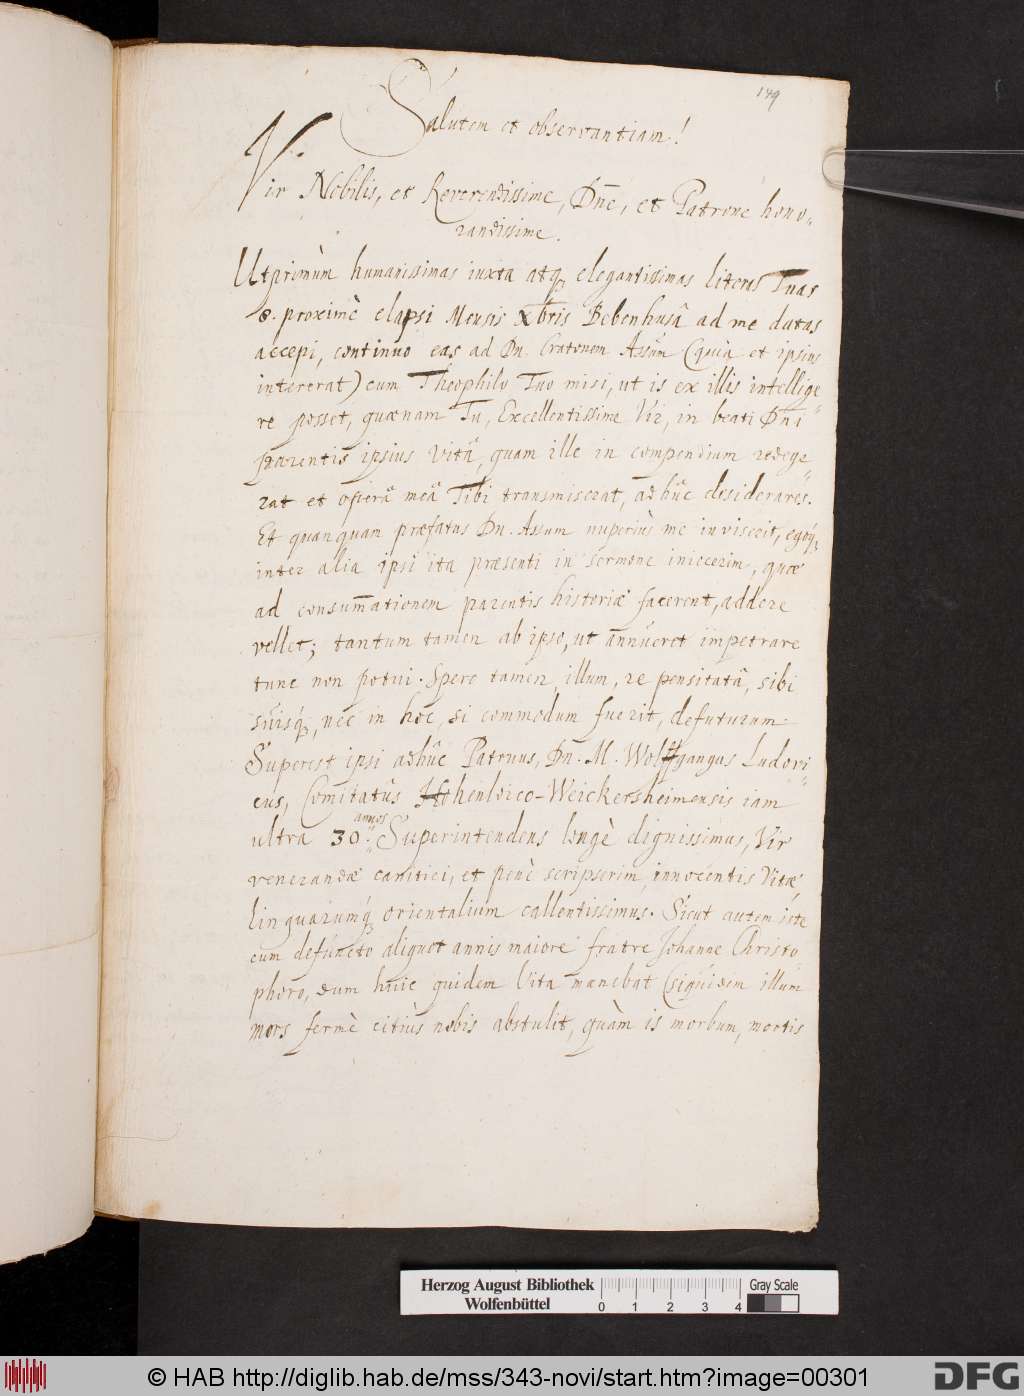 149
Salutem et observantiam!
Vir Nobilis, et Reverendissime, Dn̄e, et Patrone hono„
randissime.
Utprimùm humanissimas iuxta atq₃ elegantissimas literas Tuas
8. proximè elapsi Mensis Xbris Bebenhusâ ad me datas
accepi, continuo eas ad Dn. Cratonem Assūm (quia et ipsius
intererat) cum Theophilo Tuo misi, ut is ex illis intellige„
re posset, quænam Tu, Excellentissime Vir, in beati Dn̄i
parentis ipsius Vitâ, quam ille in compendium redege„
rat et operâ meâ Tibi transmiserat, adhûc desiderares.
Et quanquam præfatus Dn. Assum nuperiùs me inviserit, egoq́₃
inter alia ipsi ita præsenti in sermone iniecerim, quæ
ad consum̄ationem parentis historiæ facerent, addere
vellet; tantum tamen ab ipso, ut annueret impetrare
tunc non potui. Spero tamen illum, re pensitatâ, sibi
suisq́₃, nec in hoc, si commodum fuerit, defuturum.
Superest ipsi adhûc Patruus, Dn. M. Wolffgangus Ludovi„
cus, Comitatûs Hohenloico-Weickersheimensis iam
annos
ultra 30. Superintendens longè dignissimus, Vir
venerandæ canitiei, et penè scripserim, innocentis Vitæ,
linguarumq́₃ orientalium callentissimus. Sicut autem iste
cum defuncto aliquot annis maiore fratre Johanne Christo„
phoro, dum huic quidem Vita manebat (siquidem illum
mors fermè citiùs nobis abstulit, quàm is morbum, mortis
Herzog August Bibliothek
Wolfenbüttel
0 1 2 3 4
Gray Scale
© HAB http://diglib.hab.de/mss/343-novi/start.htm?image=00301
DFG